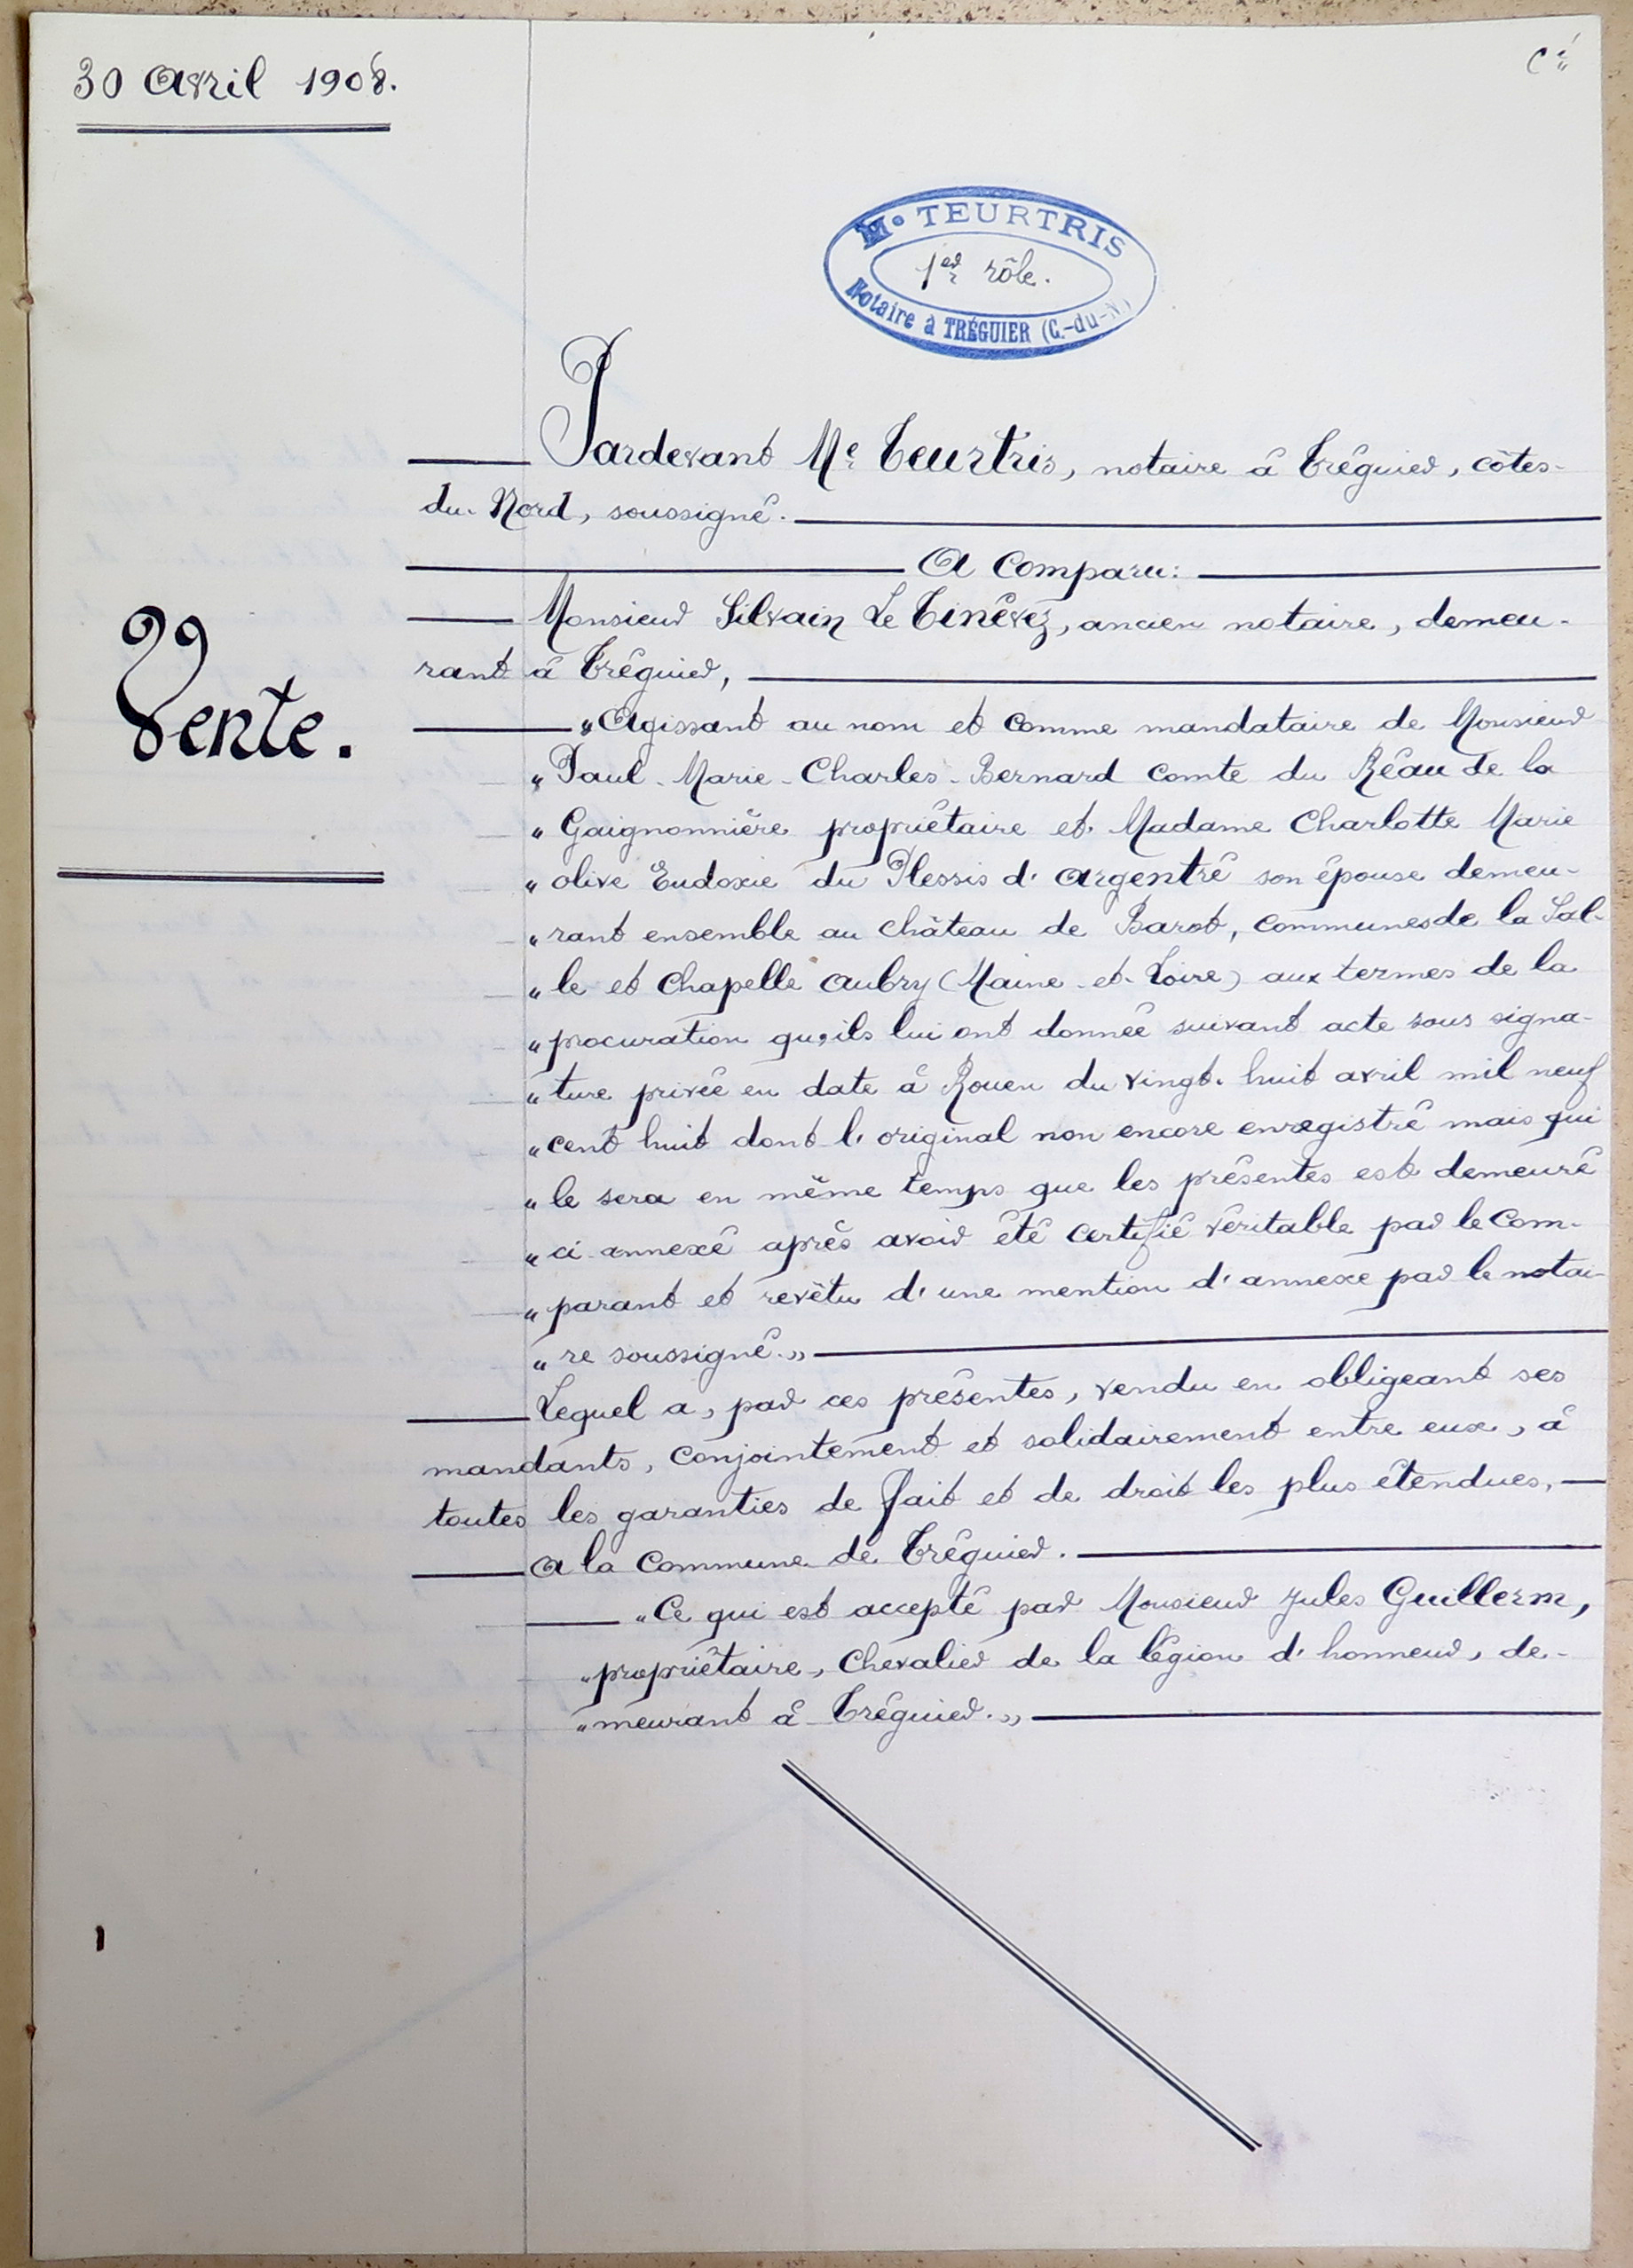 30 Avril 1908.
Cé
Me TEURTRIS
1er rôle.
Notaire à TRÉGUIER (C.-du-N.)
Pardevant Me Teurtris, notaire à Tréguier, côtes-
du-Nord, soussigné.
A Comparu:
Monsieur Silvain Le Tinévez, ancien notaire, demeu-
rant à Tréguier,
Vente.
"Agissant au nom et comme mandataire de Monsieur
"Paul-Marie-Charles-Bernard Comte du Réau de la
"Gaignonnière propriétaire et Madame Charlotte Marie
"olive Eudoxie du Plessis d'Argentré son épouse demeu-
"rant ensemble au château de Barot, communes de la Sal-
"le et Chapelle Aubry (Maine-et-Loire) aux termes de la
"procuration qu'ils lui ont donnée suivant acte sous signa-
"ture privée en date à Rouen du vingt-huit avril mil neuf
"cent huit dont l'original non encore enregistré mais qui
"le sera en même temps que les présentes est demeuré
"ci-annexé après avoir été certifié véritable par le Com-
"parant et revêtu d'une mention d'annexe par le notai-
"re soussigné."
Lequel a, par ces présentes, vendu en obligeant ses
mandants, conjointement et solidairement entre eux, à
toutes les garanties de fait et de droit les plus étendues,
A la Commune de Tréguier.
"Ce qui est accepté par Monsieur Jules Guillerm,
"propriétaire, Chevalier de la légion d'honneur, de-
"meurant à Tréguier."